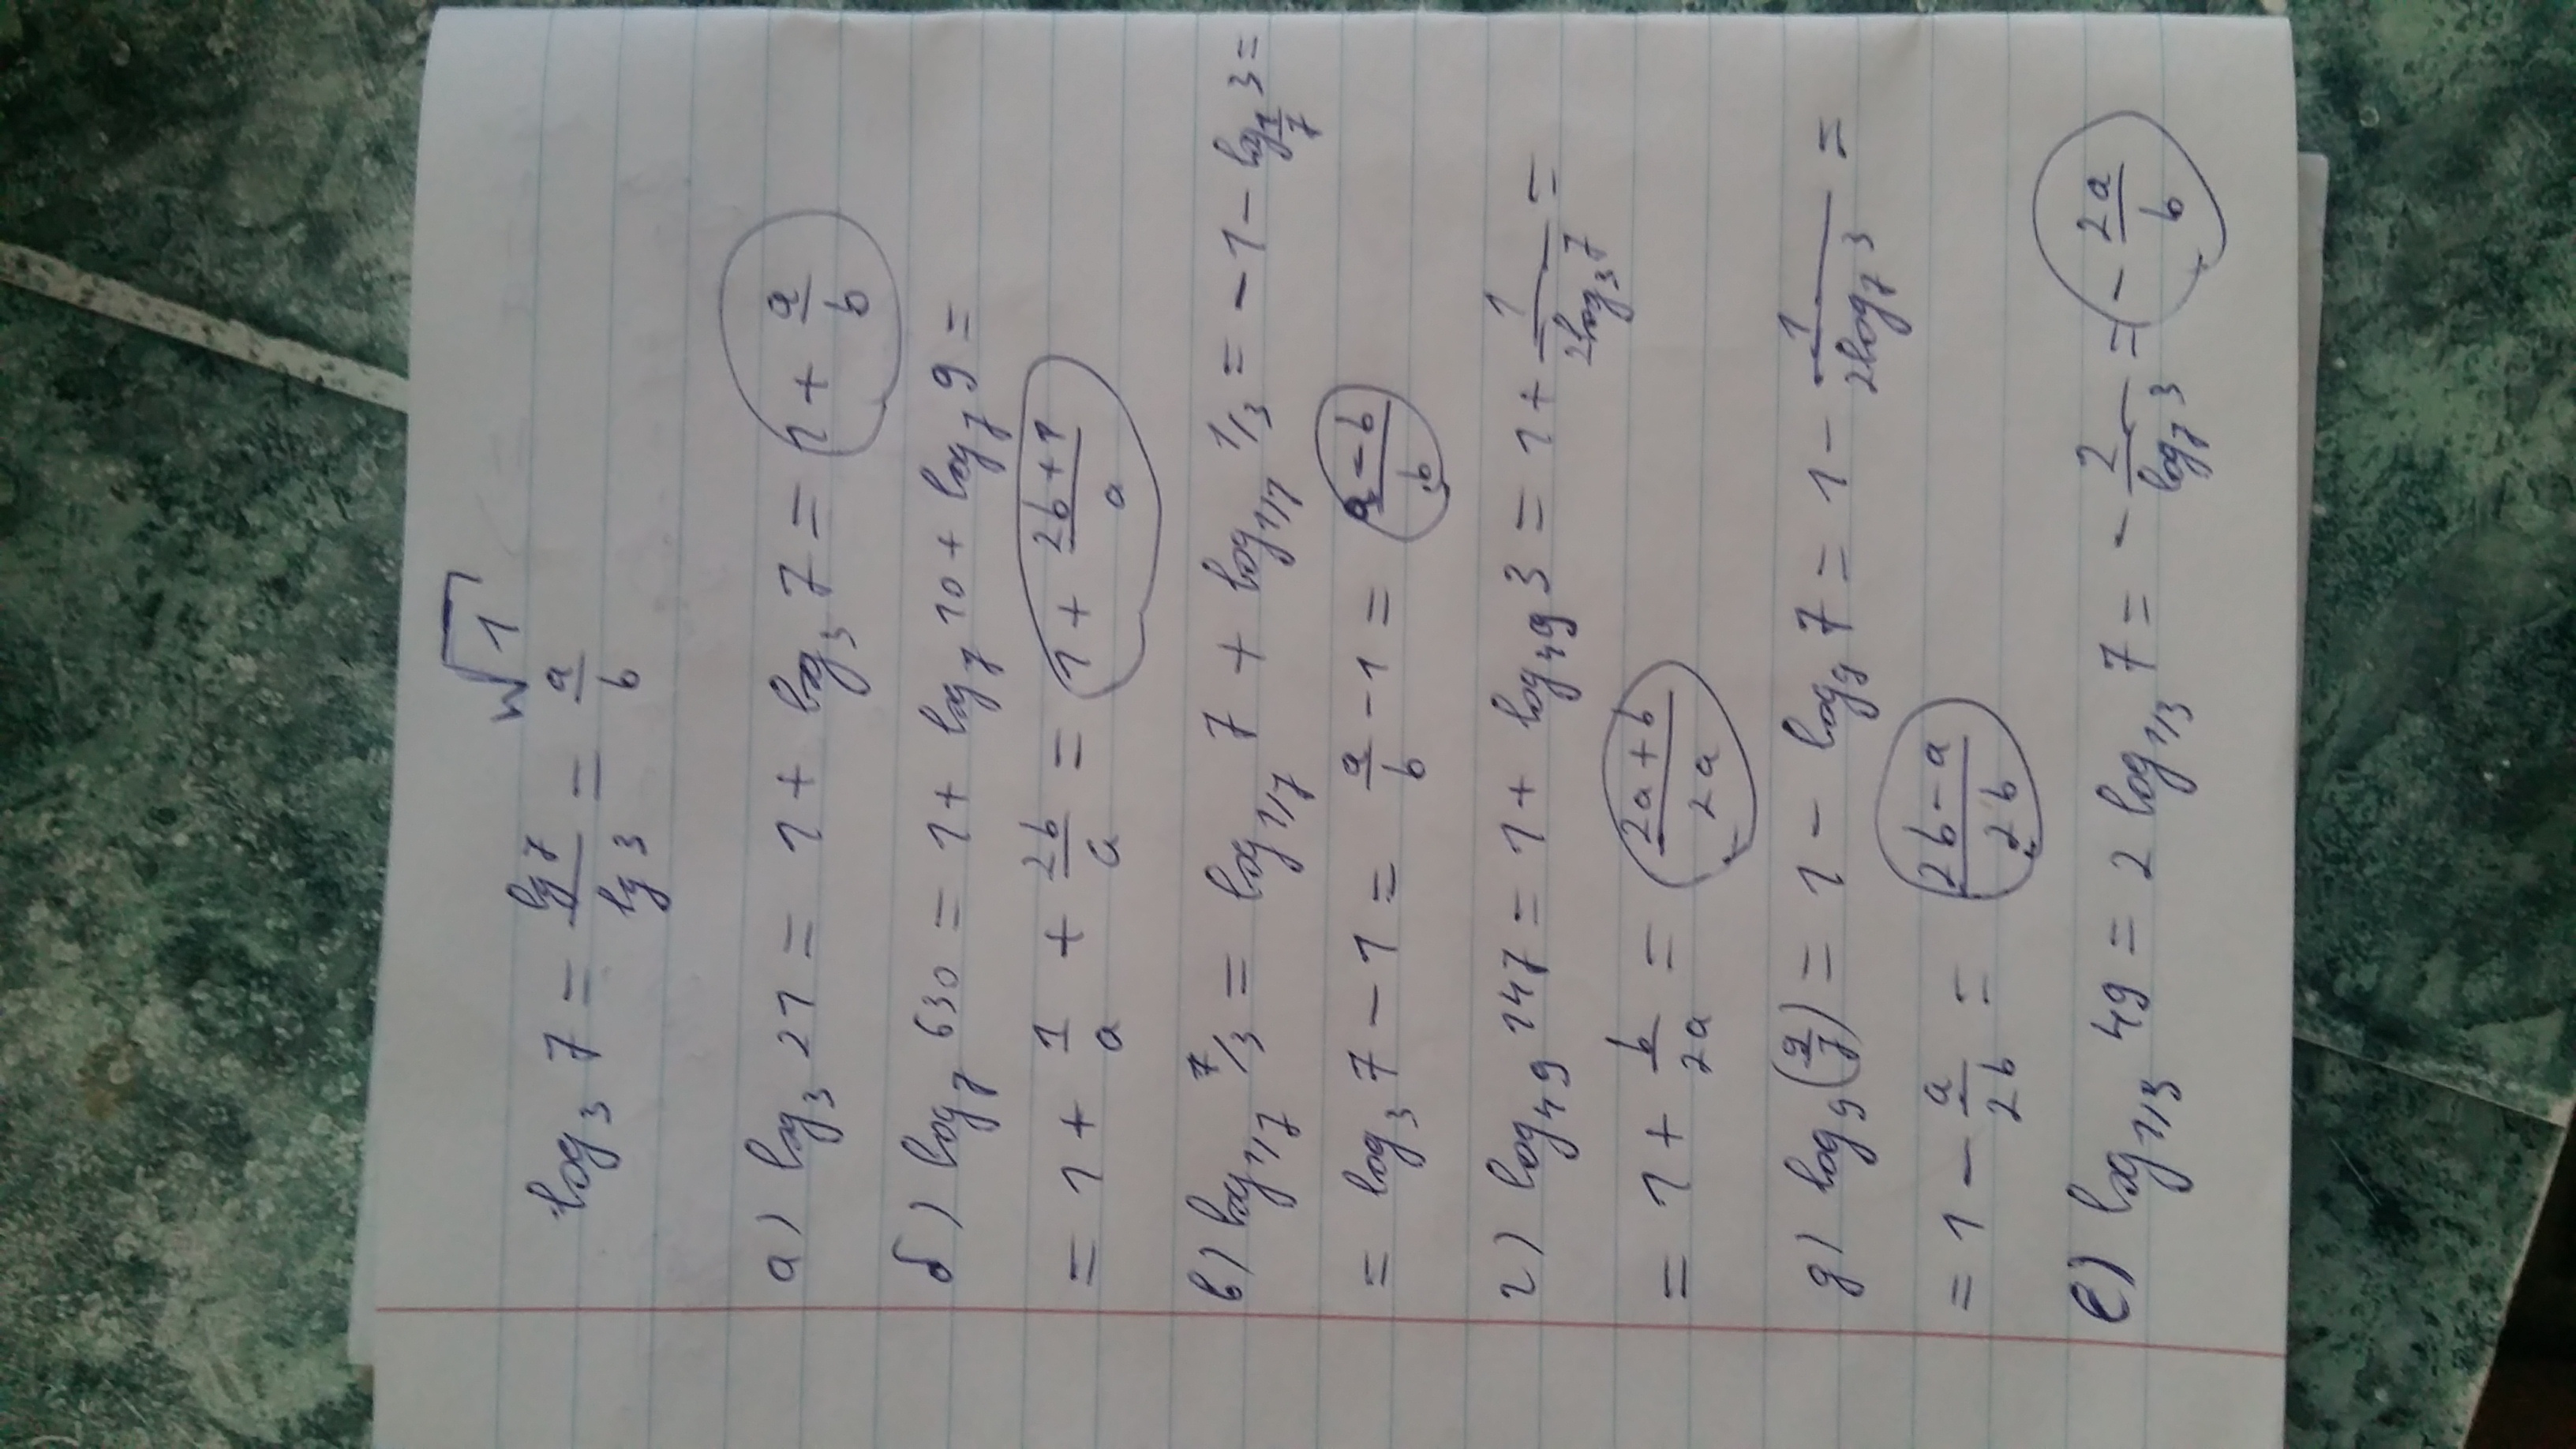 №1
log₃ 7 = lg 7 / lg 3 = a/b
а) log₃ 21 = 1 + log₃ 7 = 1 + a/b
б) log₇ 630 = 1 + log₇ 10 + log₇ 9 =
= 1 + 1/a + 2b/a = 1 + (2b+1)/a
в) log_{1/7} 7/3 = log_{1/7} 7 + log_{1/7} 1/3 = -1 - log_{1/7} 3 =
= log₃ 7 - 1 = a/b - 1 = (a-b)/b
г) log₄₉ 147 = 1 + log₄₉ 3 = 1 + 1/(2log₃ 7) =
= 1 + b/2a = (2a+b)/2a
д) log₉ (9/7) = 1 - log₉ 7 = 1 - 1/(2log₇ 3) =
= 1 - a/2b = (2b-a)/2b
е) log_{1/3} 49 = 2 log_{1/3} 7 = - 2/(log₇ 3) = - 2a/b